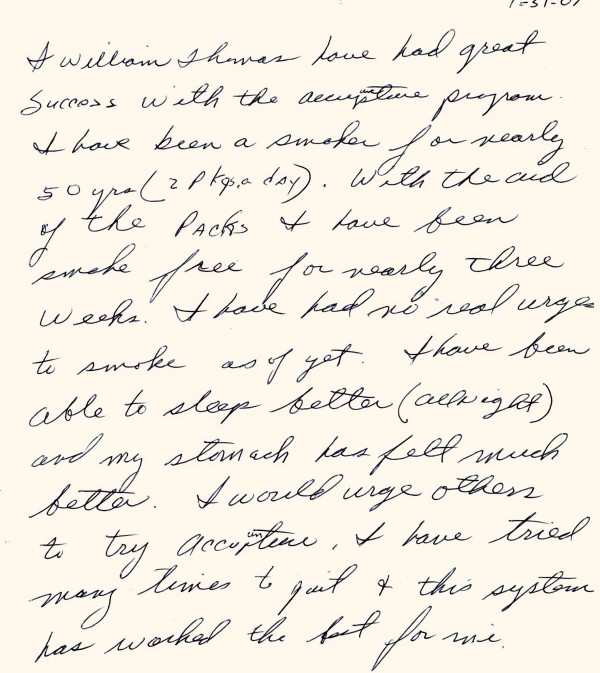 1-31-07
I William Thomas have had great
success with the accupunture program.
I have been a smoker for nearly
50 yrs (2 Pkgs. a day). With the aid
of the Packs I have been
smoke free for nearly three
weeks. I have had no real urges
to smoke as of yet. I have been
able to sleep better (all night)
and my stomach has felt much
better. I would urge others
to try accupunture. I have tried
many times to quit & this system
has worked the best for me.